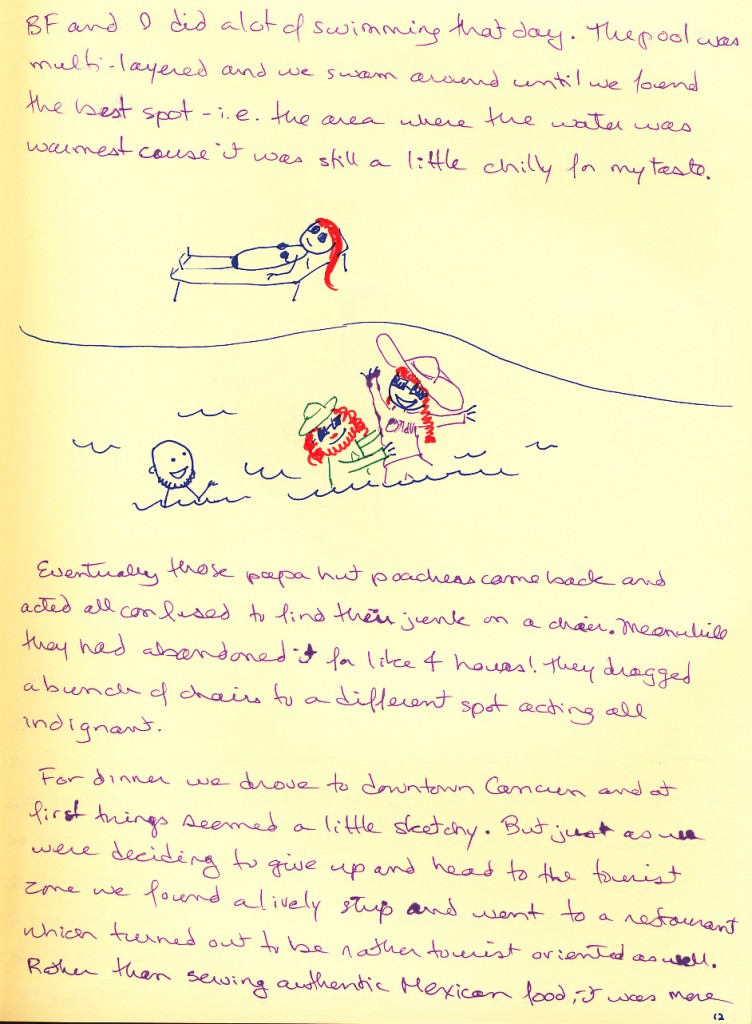 BF and I did a lot of swimming that day. The pool was
multi-layered and we swam around until we found
the best spot - i.e. the area where the water was
warmest cause it was still a little chilly for my taste.
Eventually those papa hut poachers came back and
acted all confused to find their junk on a chair. Meanwhile
they had abandoned it for like 4 hours! They dragged
a bunch of chairs to a different spot acting all
indignant.
For dinner we drove to downtown Cancun and at
first things seemed a little sketchy. But just as we
were deciding to give up and head to the tourist
zone we found a lively strip and went to a restaurant
which turned out to be rather tourist oriented as well.
Rather than serving authentic Mexican food, it was more
12